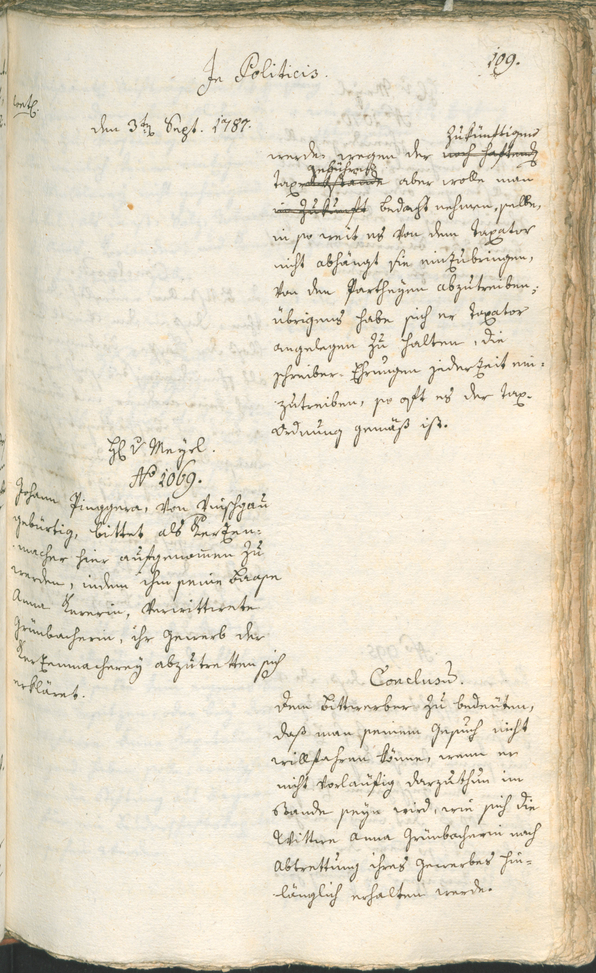 109.
In Politicis.
den 3ten Sept. 1787.
zukünftigens
werde, wegen der noch haftende
gebühres
Tax aber wolle man
in Zukunft bedacht nehmen, selbe,
in so weit es von dem Taxator
nicht abhängt sie einzubringen,
von den Partheyen abzutreiben;
übrigens habe sich er Taxator
angelegen zu halten, die
schreiber- Ehrungen jederzeit ein-
zutreiben, so oft es der Tax-
ordnung gemäß ist.
H. v Mayrl.
No 1069.
Johann Pinggera, von Vinschgau
gebürtig, bittet als Kerzen-
macher hier aufgenommen zu
werden, indem ihm seine Baase
Anna Kererin, verwittwete
Grünbacherin, ihr Gewerb der
Kerzenmacherey abzutretten sich
erkläret.
Conclusum.
Dem Bittwerber zu bedeuten,
daß man seinem Gesuch nicht
willfahren könne, wenn er
nicht vorläufig darzuthun im
Stande seyn wird, wie sich die
Wittwe Anna Grünbacherin nach
Abtrettung ihres Gewerbes hin-
länglich erhalten werde.